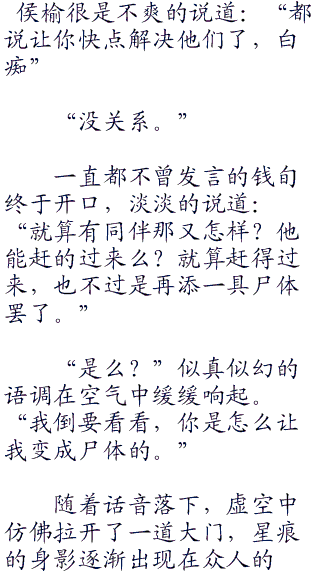 侯榆很是不爽的说道：“都
说让你快点解决他们了，白
痴”
“没关系。”
一直都不曾发言的钱旬
终于开口，淡淡的说道：
“就算有同伴那又怎样？他
能赶的过来么？就算赶得过
来，也不过是再添一具尸体
罢了。”
“是么？”似真似幻的
语调在空气中缓缓响起。
“我倒要看看，你是怎么让
我变成尸体的。”
随着话音落下，虚空中
仿佛拉开了一道大门，星痕
的身影逐渐出现在众人的